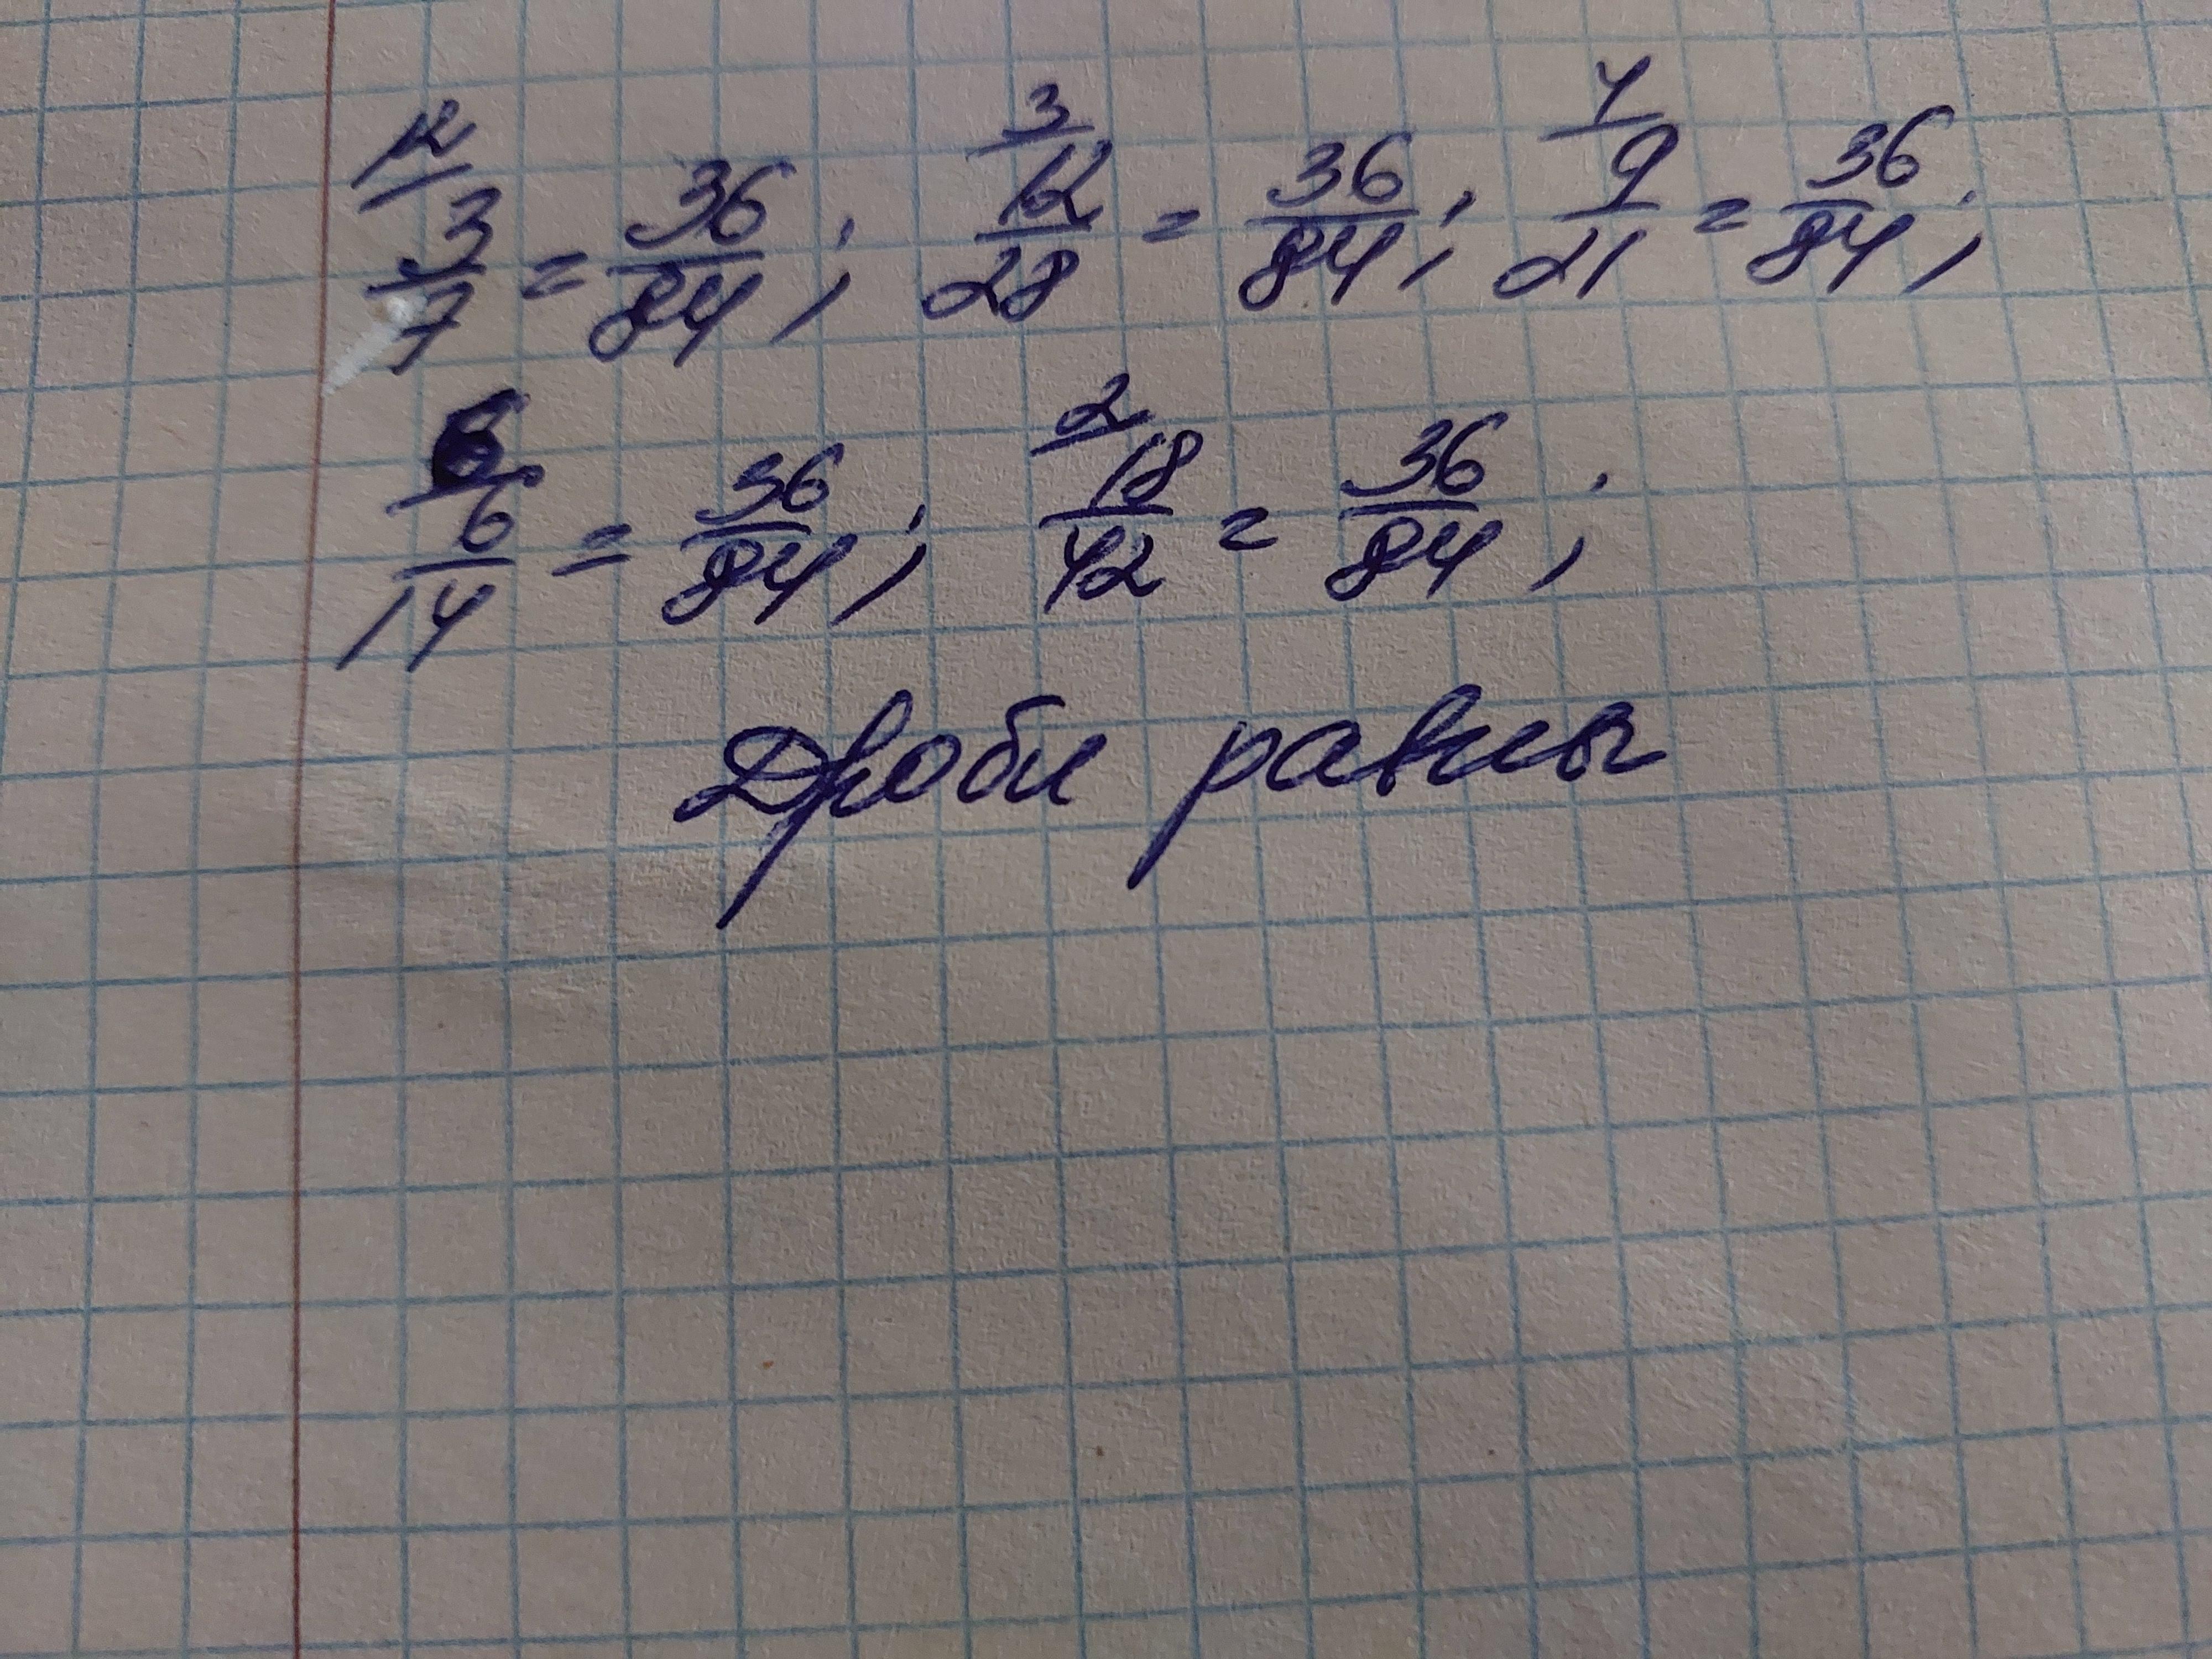 12 3/7 = 36/84 ; 3 12/28 = 36/84 ; 4 9/21 = 36/84 ;
6 6/14 = 36/84 ; 2 18/42 = 36/84 ;
Дроби равны